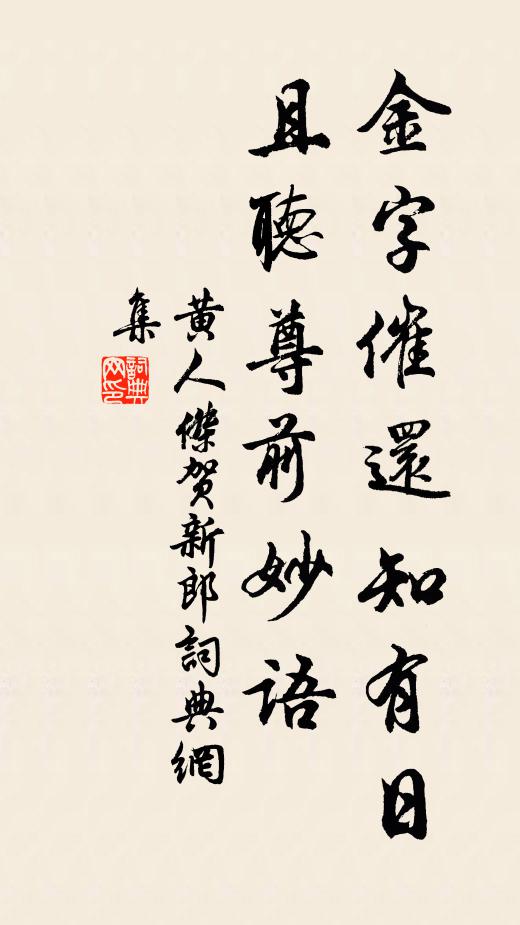 金字催還知有日
且聽尊前妙語
黃人傑賀新郎詞典網
集
詞典
网印